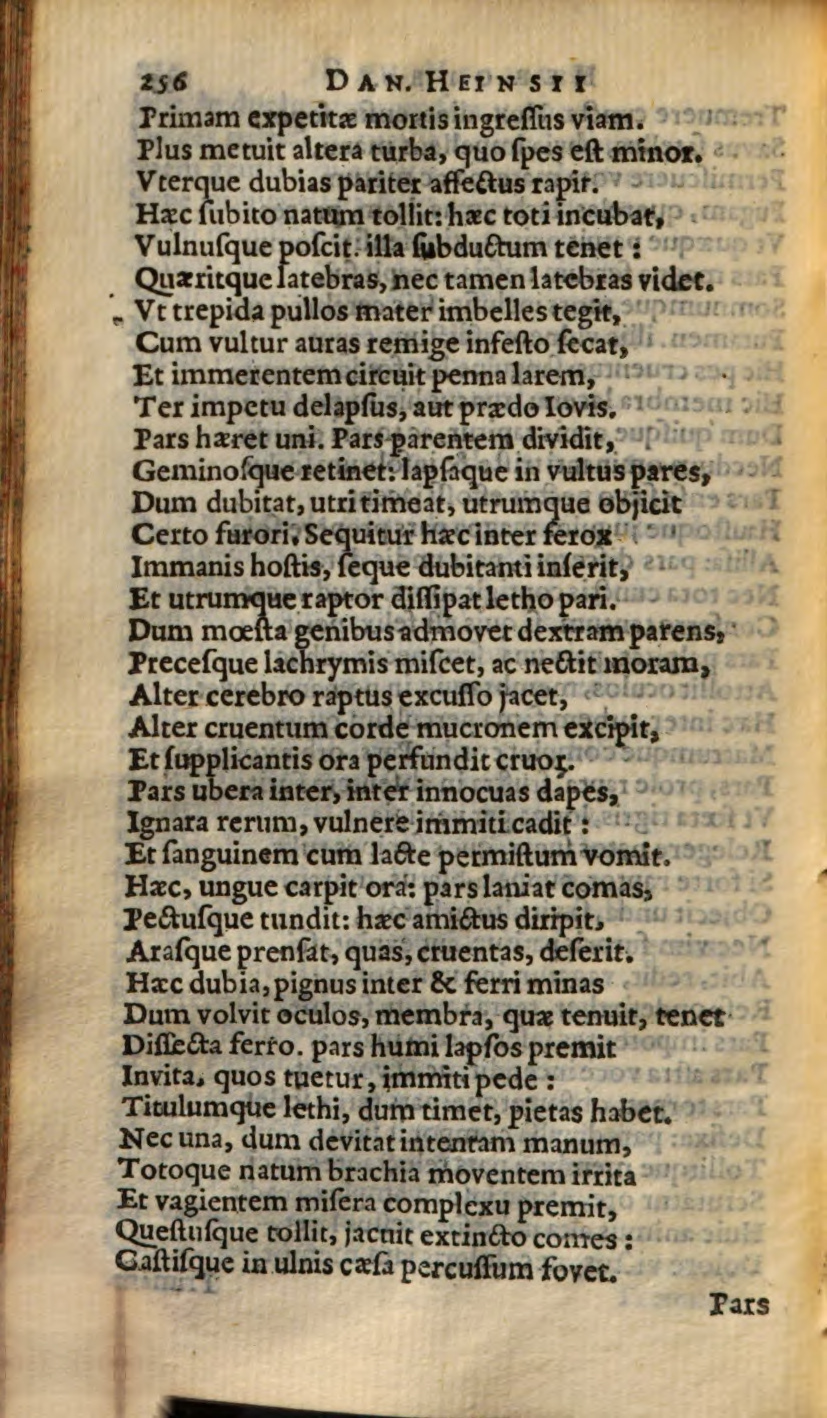 256 DAN. HEINSII
Primam expetitæ mortis ingreſſus viam.
Plus metuit altera turba, quo ſpes eſt minor.
Vterque dubias pariter affectus rapit.
Hæc ſubito natum tollit: hæc toti incubat,
Vulnuſque poſcit. illa ſubductum tenet :
Quæritque latebras, nec tamen latebras videt.
Vt trepida pullos mater imbelles tegit,
Cum vultur auras remige infeſto ſecat,
Et immerentem circuit penna larem,
Ter impetu delapſus, aut prædo Iovis.
Pars hæret uni. Pars parentem dividit,
Geminoſque retinet: lapſaque in vultus pares,
Dum dubitat, utri timeat, utrumque objicit
Certo furori. Sequitur hæc inter ferox
Immanis hoſtis, ſeque dubitanti inſerit,
Et utrumque raptor diſſipat letho pari.
Dum mœſta genibus admovet dextram parens,
Preceſque lachrymis miſcet, ac nectit moram,
Alter cerebro raptus excuſſo jacet,
Alter cruentum corde mucronem excipit,
Et ſupplicantis ora perfundit cruor.
Pars ubera inter, inter innocuas dapes,
Ignara rerum, vulnere immiti cadit :
Et ſanguinem cum lacte permiſtum vomit.
Hæc, ungue carpit ora: pars laniat comas,
Pectuſque tundit: hæc amictus diripit,
Araſque prenſat, quas, cruentas, deſerit.
Hæc dubia, pignus inter & ferri minas
Dum volvit oculos, membra, quæ tenuit, tenet
Diſſecta ferro. pars humi lapſos premit
Invita, quos tuetur, immiti pede :
Titulumque lethi, dum timet, pietas habet.
Nec una, dum devitat intentam manum,
Totoque natum brachia moventem irrita
Et vagientem miſera complexu premit,
Queſtuſque tollit, jacuit extincto comes :
Caſtiſque in ulnis cæſa percuſſum fovet.
Pars